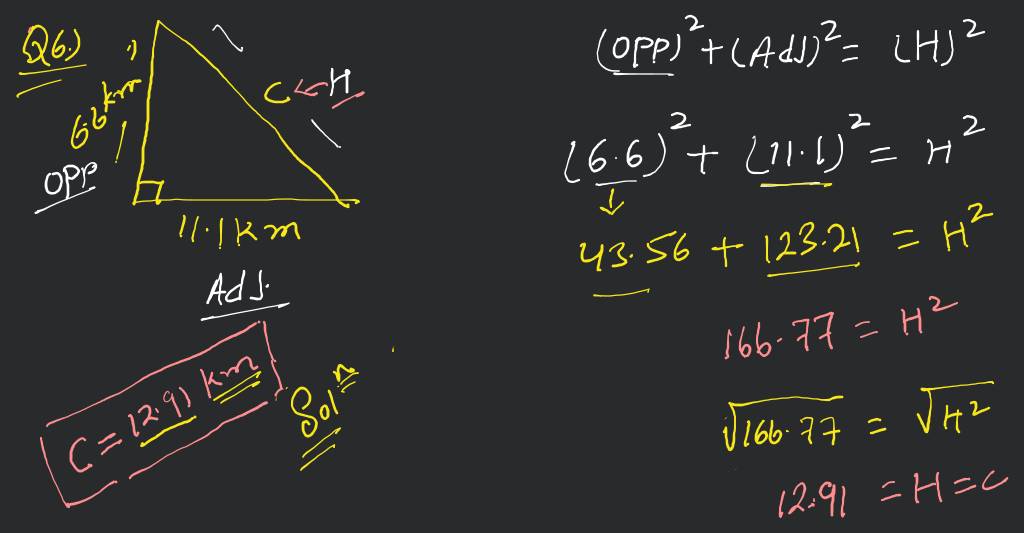 Q6.)
6.6 km
OPP
C ← H
11.1 km
Adj.
C = 12.91 km
Solⁿ
(OPP)² + (Adj)² = (H)²
(6.6)² + (11.1)² = H²
43.56 + 123.21 = H²
166.77 = H²
√166.77 = √H²
12.91 = H = C